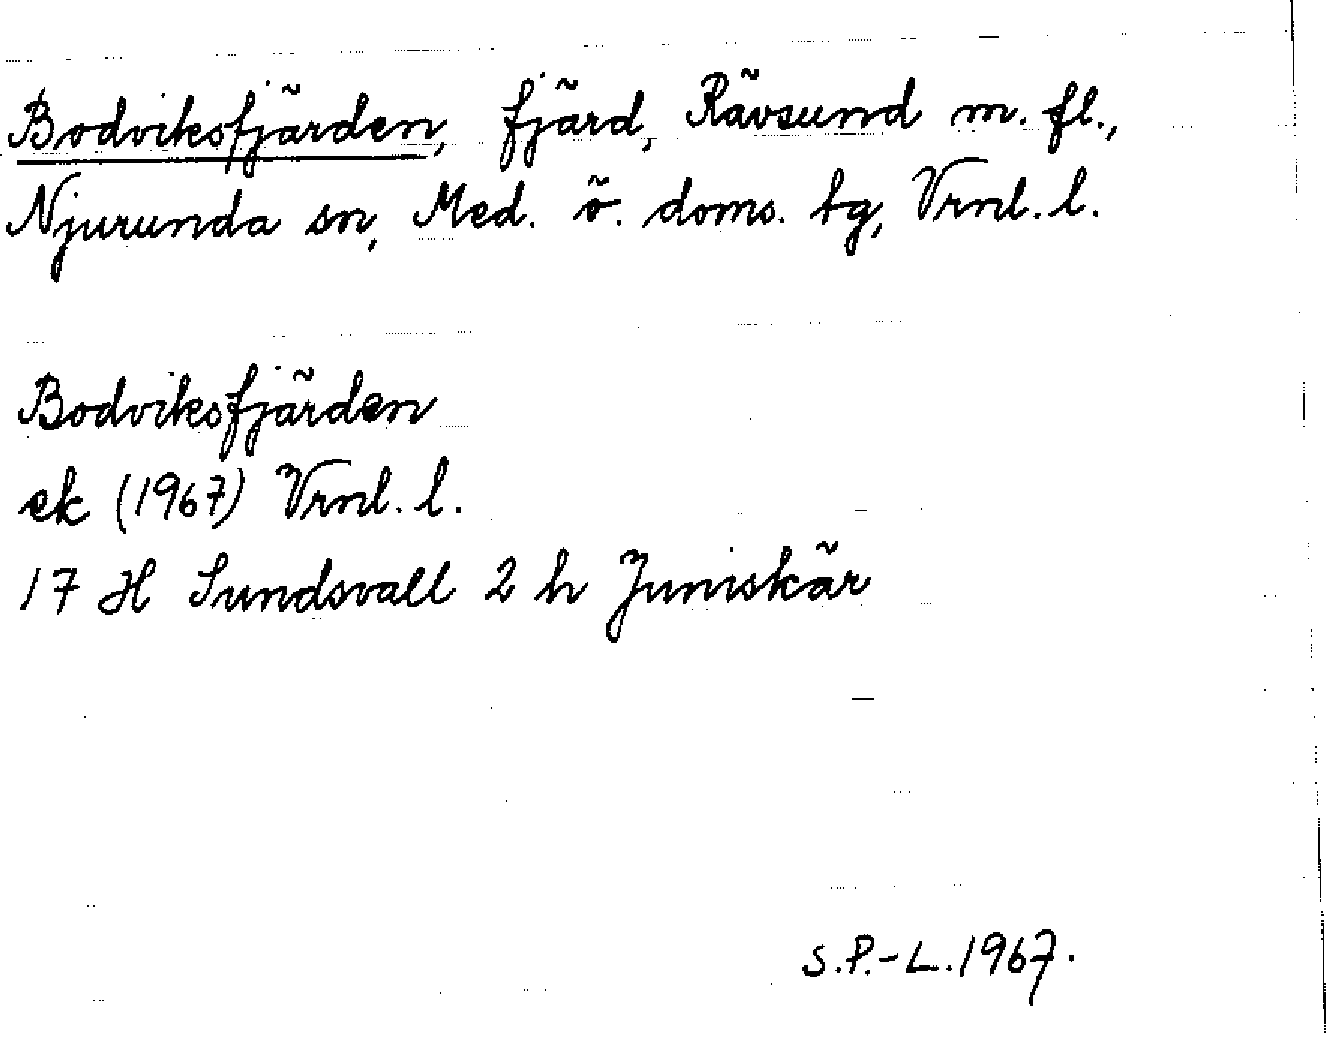 Bodviksfjärden, fjärd, Rävsund m. fl.,
Njurunda sn, Med. ö. doms. tg, Vrnl. l.
Bodviksfjärden
ek (1967) Vrnl. l.
17 H Sundsvall 2 h Juniskär
S.P.-L. 1967.